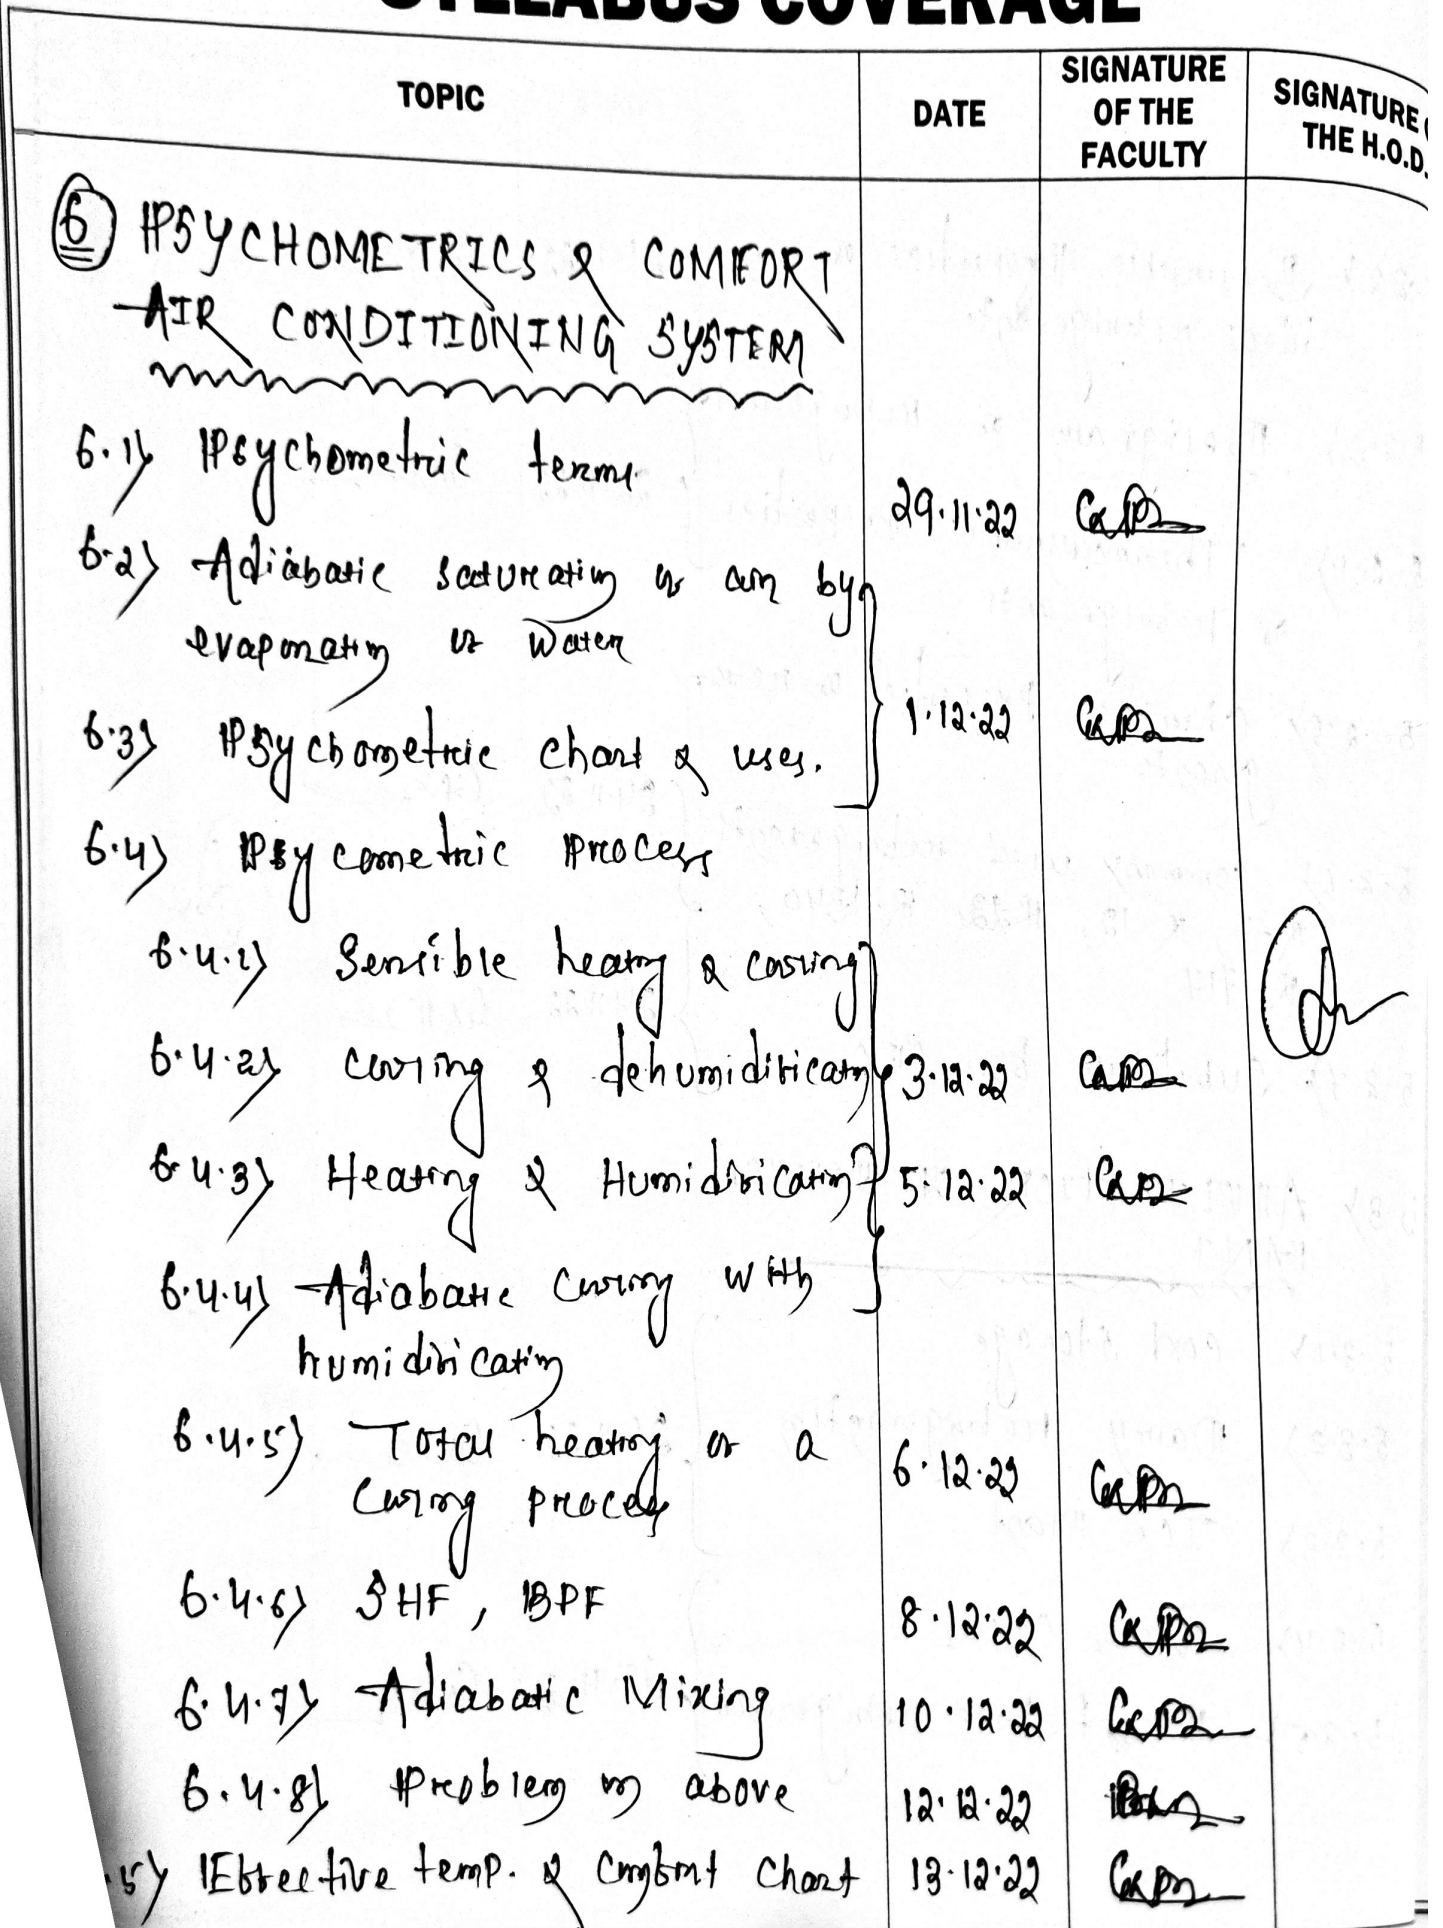 SYLLABUS COVERAGE
TOPIC DATE SIGNATURE OF THE FACULTY SIGNATURE THE H.O.D.
6 PSYCHOMETRICS & COMFORT
AIR CONDITIONING SYSTEM
6.1) Psychometric terms 29.11.22
6.2) Adiabatic saturation of air by
evaporation of Water
6.3) Psychometric chart & uses. 1.12.22
6.4) Psycometric Process
6.4.1) Sensible heating & cooling
6.4.2) cooling & dehumidification 3.12.22
6.4.3) Heating & Humidification 5.12.22
6.4.4) Adiabatic cooling with
humidification
6.4.5) Total heating of a 6.12.22
cooling process
6.4.6) SHF, BPF 8.12.22
6.4.7) Adiabatic Mixing 10.12.22
6.4.8) Problem on above 12.12.22
.5) Effective temp. & comfort chart 13.12.22